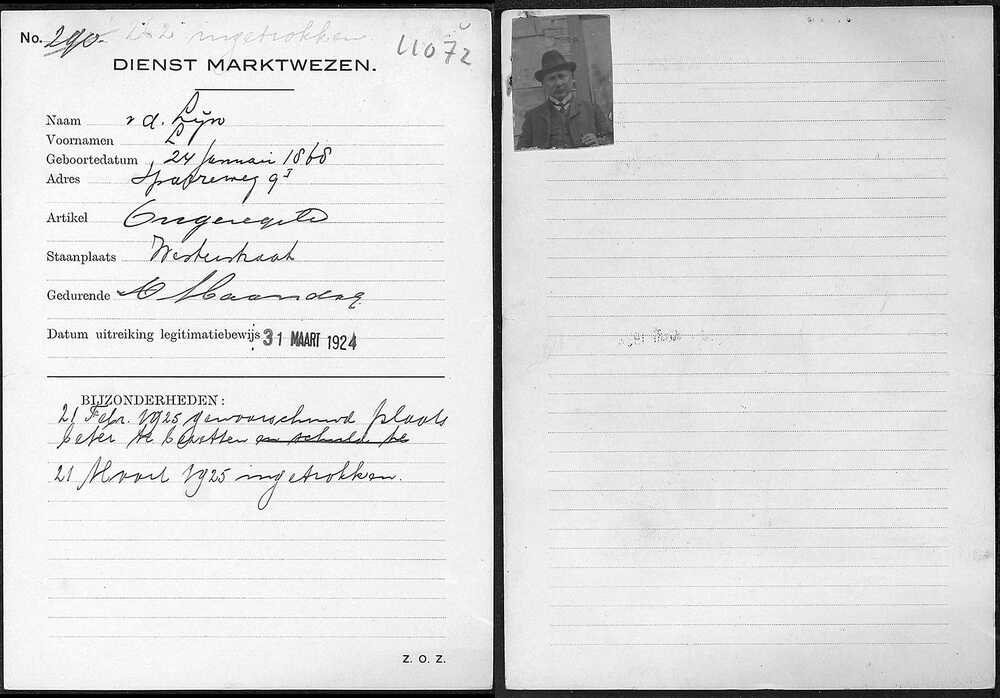 No. 290. ingetrokken
11072
DIENST MARKTWEZEN.
Naam v d. Lijn
Voornamen L
Geboortedatum 24 Januari 1868
Adres Spaarreweg 9 I
Artikel Ongeregeld
Staanplaats Westerstraat
Gedurende Maandag
Datum uitreiking legitimatiebewijs 31 MAART 1924
BIJZONDERHEDEN:
21 Febr. 1925 gewaarschuwd plaats
beter te bezetten en schuld te
21 Maart 1925 ingetrokken.
Z. O. Z.